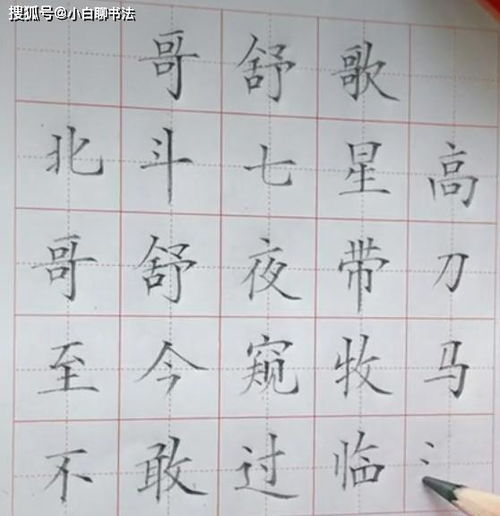 搜狐号@小白聊书法
哥舒歌
北斗七星高
哥舒夜带刀
至今窥牧马
不敢过临氵